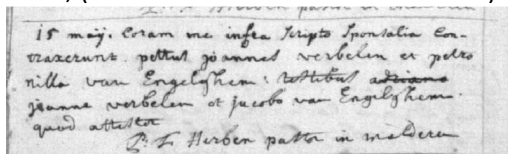 15 maij. Coram me infra scripto sponsalia Con-
traxerunt. petrus joannes verbelen et petro
nilla van Engelghem: testibus adriano
joanne verbelen et jacobo van Engelghem.
quod attestor
P: F Herben pastor in malderen